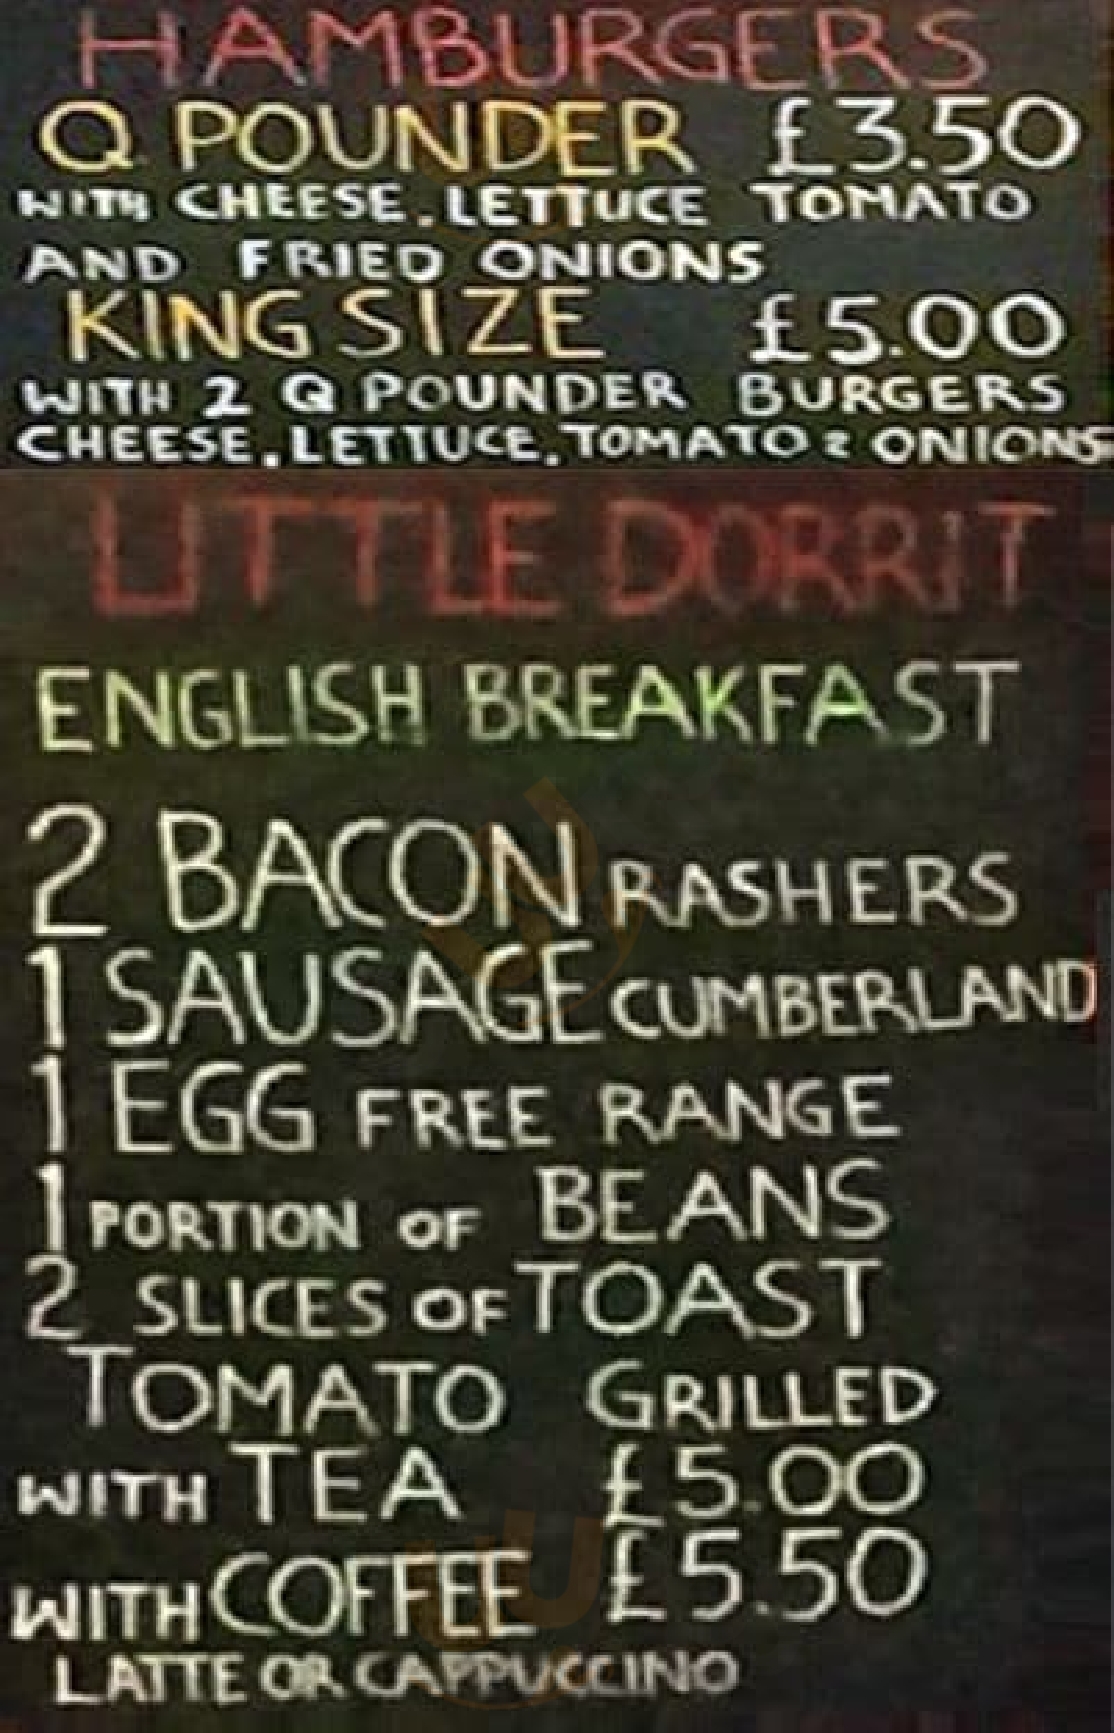 HAMBURGERS
Q POUNDER £3.50
WITH CHEESE, LETTUCE TOMATO
AND FRIED ONIONS
KING SIZE £5.00
WITH 2 Q POUNDER BURGERS
CHEESE, LETTUCE, TOMATO & ONIONS
LITTLE DORRIT
ENGLISH BREAKFAST
2 BACON RASHERS
1 SAUSAGE CUMBERLAND
1 EGG FREE RANGE
1 PORTION OF BEANS
2 SLICES OF TOAST
TOMATO GRILLED
WITH TEA £5.00
WITH COFFEE £5.50
LATTE OR CAPPUCCINO